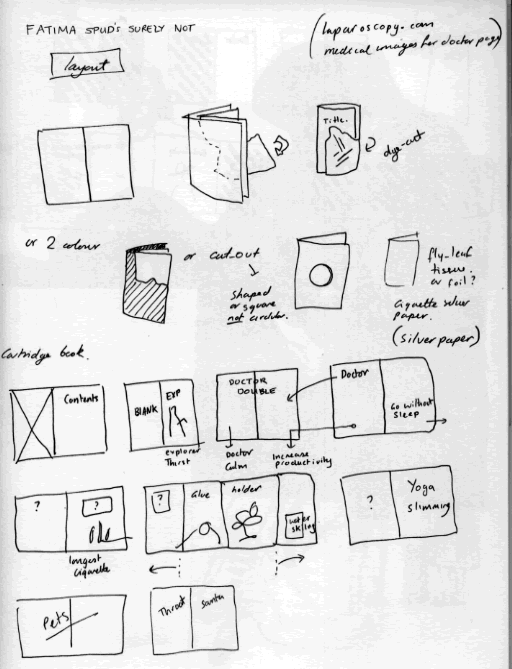 FATIMA SPUD'S SURELY NOT
(laparoscopy.com
medical images for doctor page)
layout
Title.
dye-cut
or 2 colour
or cut-out
shaped
or square
not circular.
fly-leaf
tissue.
or foil?
cigarette silver
paper.
(silver paper)
Cartridge book.
Contents
BLANK
EXP
explorer
Thirst
DOCTOR
DOUBLE
Doctor
Calm
Increase
productivity
Doctor
Go without
sleep
?
?
longest
cigarette
?
Glue
holder
water
skiing
?
Yoga
slimming
Pets
Throat
Santa